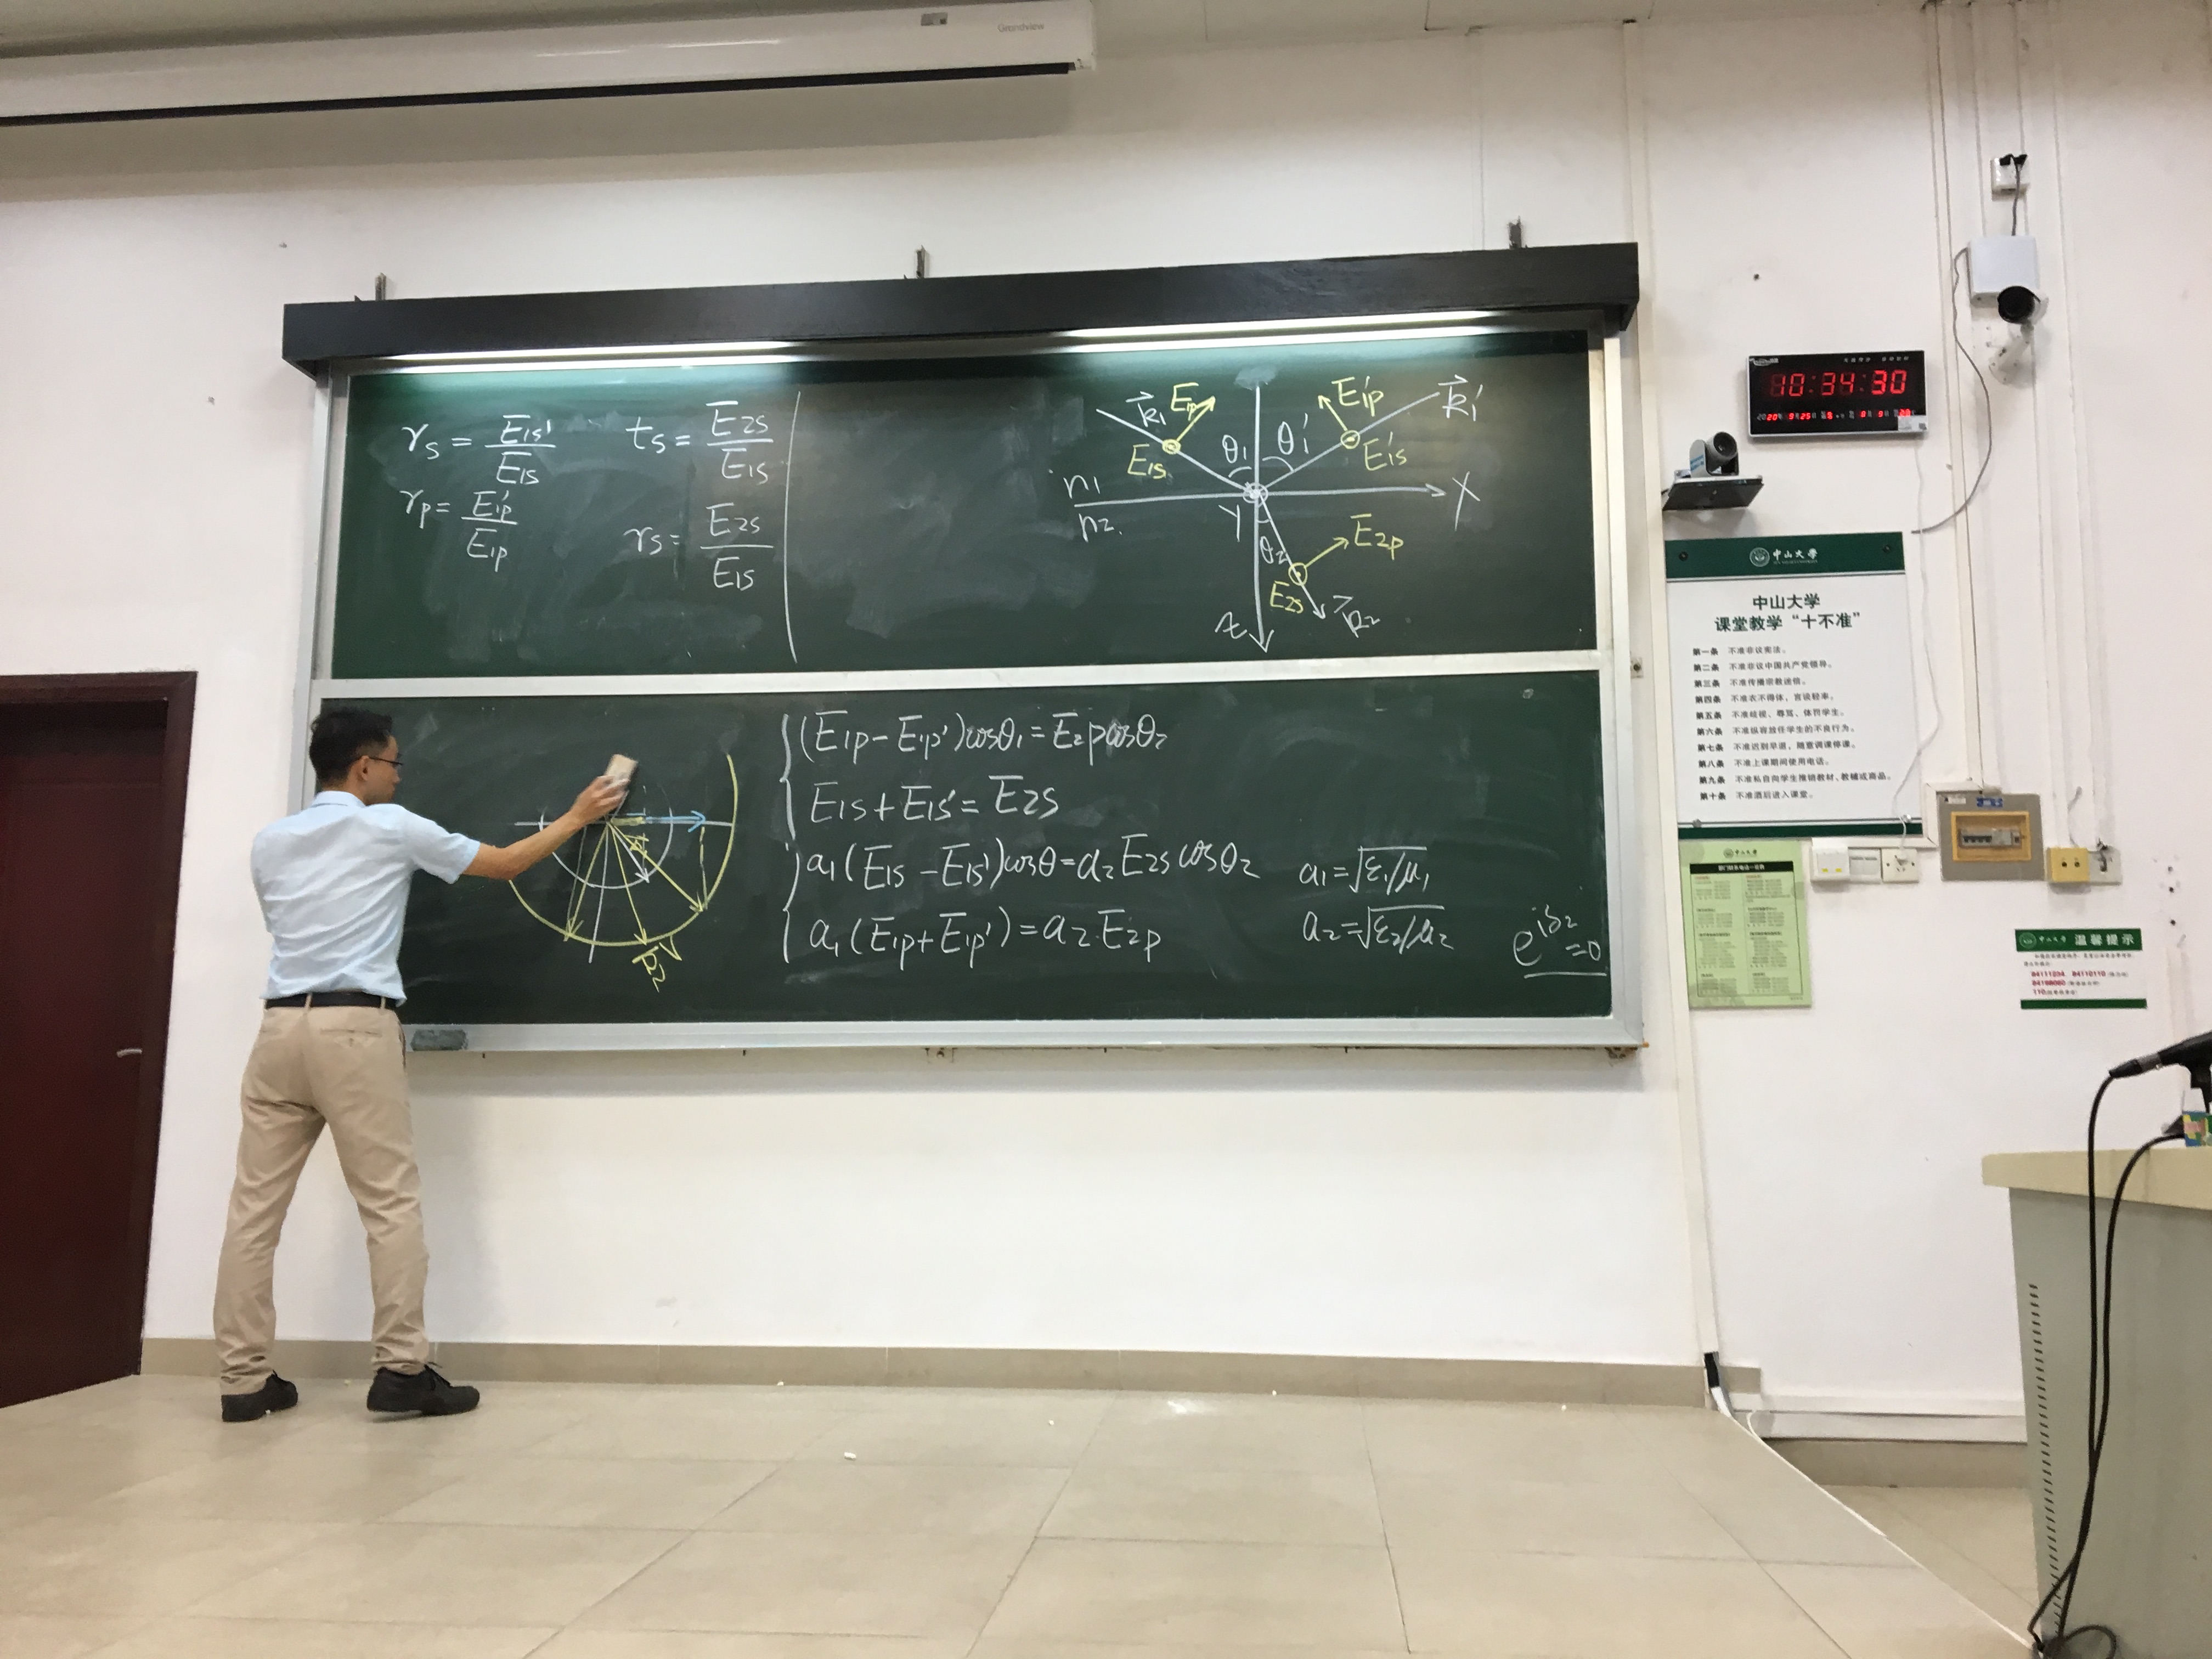 Grandview
r_s = E_1s' / E_1s
t_s = E_2s / E_1s
r_p = E'_1p / E_1p
r_s = E_2s / E_1s
k⃗_1
E_1p
E_1s
θ_1
θ'_1
E'_1p
k⃗_1'
E'_1s
n_1
n_2.
X
Y
θ_2
E_2p
E_2s
k⃗_2
z
(E_1p - E_1p')cosθ_1 = E_2p cosθ_2
E_1s + E_1s' = E_2s
a_1(E_1s - E_1s')cosθ = a_2 E_2s cosθ_2
a_1(E_1p + E_1p') = a_2·E_2p
a_1 = √ε_1/μ_1
a_2 = √ε_2/μ_2
e^iδ_2 = 0
10:34:30
中山大学
中山大学
课堂教学“十不准”
第一条 不准非议宪法。
第二条 不准非议中国共产党领导。
第三条 不准传播宗教迷信。
第四条 不准衣不得体，言谈轻率。
第五条 不准歧视、辱骂、体罚学生。
第六条 不准纵容放任学生的不良行为。
第七条 不准迟到早退，随意调课停课。
第八条 不准上课期间使用电话。
第九条 不准私自向学生推销教材、教辅或商品。
第十条 不准酒后进入课堂。
中山大学
中山大学 温馨提示